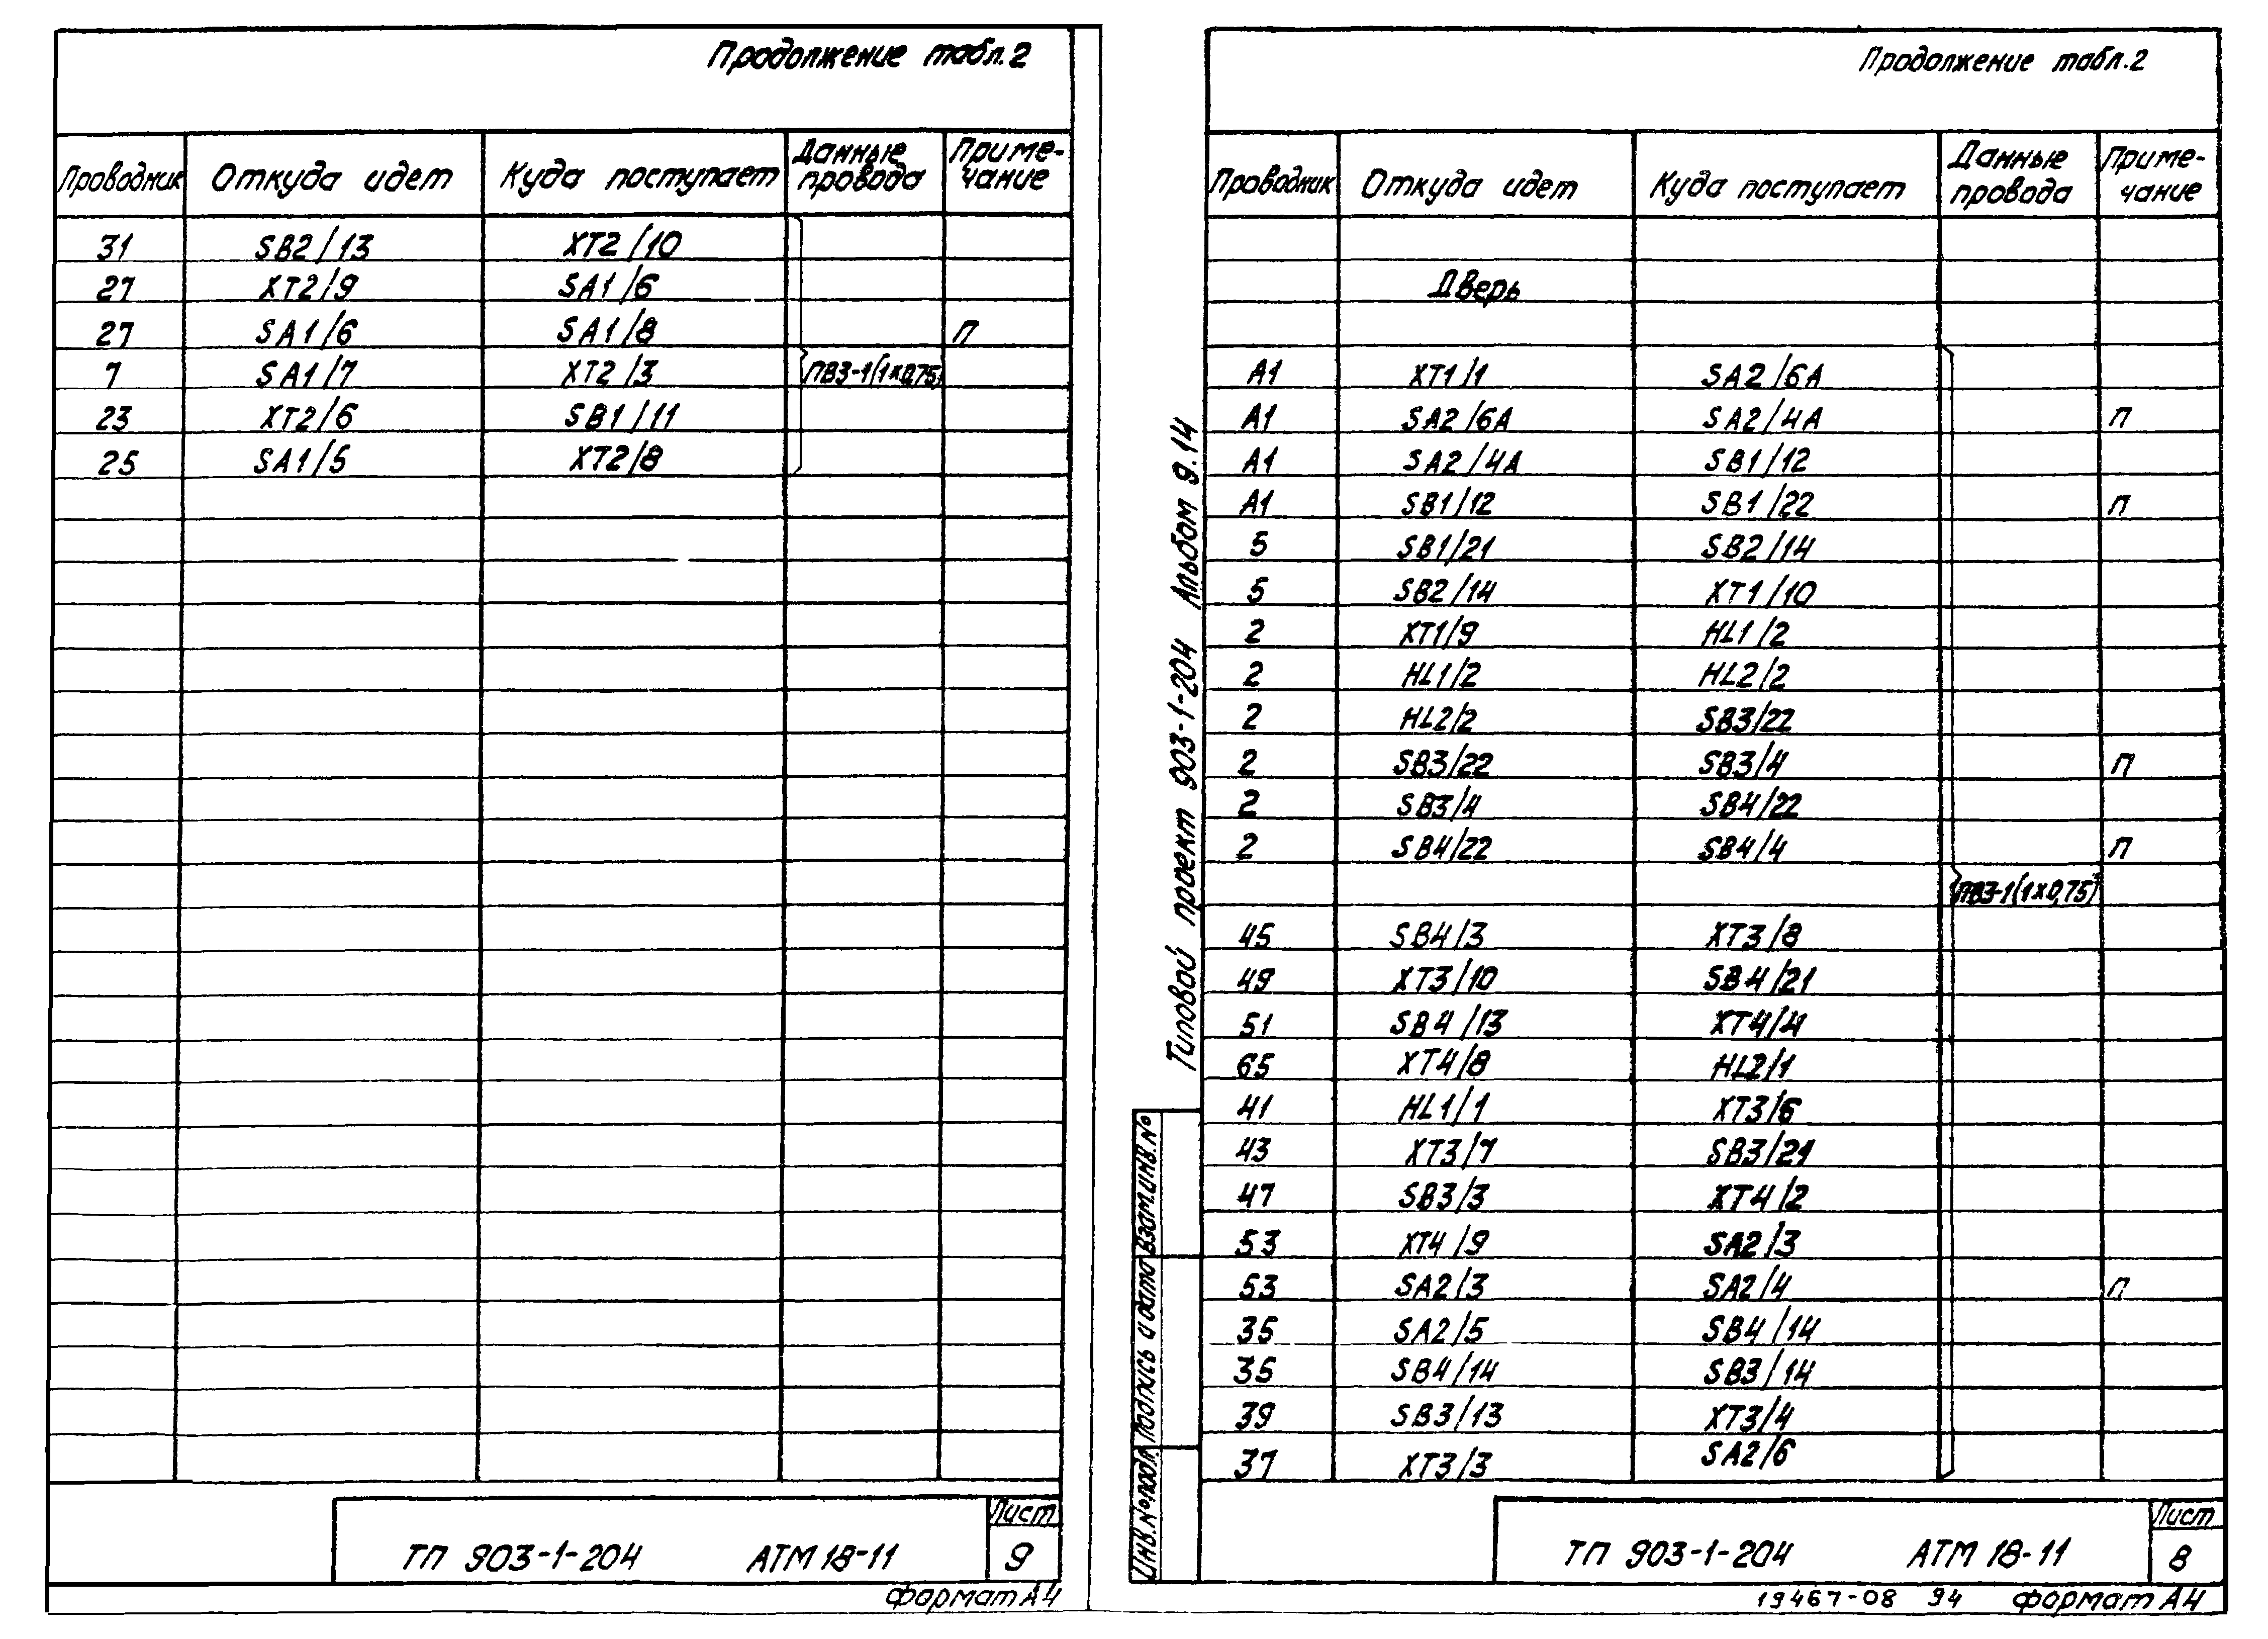 Продолжение табл.2
Проводник Откуда идет Куда поступает Данные провода Приме-чание
31 SB2/13 XT2/10
27 XT2/9 SA1/6
27 SA1/6 SA1/8 П
7 SA1/7 XT2/3 ПВ3-1(1×0,75)
23 XT2/6 SB1/11
25 SA1/5 XT2/8
ТП 903-1-204 АТМ 18-11 Лист 9
Формат А4
Продолжение табл.2
Проводник Откуда идет Куда поступает Данные провода Приме-чание
Дверь
А1 XT1/1 SA2/6A
А1 SA2/6A SA2/4A П
А1 SA2/4A SB1/12
А1 SB1/12 SB1/22 П
5 SB1/21 SB2/14
5 SB2/14 XT1/10
2 XT1/9 HL1/2
2 HL1/2 HL2/2
2 HL2/2 SB3/22
2 SB3/22 SB3/4 П
2 SB3/4 SB4/22
2 SB4/22 SB4/4 П
ПВ3-1(1×0,75)
45 SB4/3 XT3/8
49 XT3/10 SB4/21
51 SB4/13 XT4/4
65 XT4/8 HL2/1
41 HL1/1 XT3/6
43 XT3/7 SB3/21
47 SB3/3 XT4/2
53 XT4/9 SA2/3
53 SA2/3 SA2/4 П
35 SA2/5 SB4/14
35 SB4/14 SB3/14
39 SB3/13 XT3/4
37 XT3/3 SA2/6
Типовой проект 903-1-204 Альбом 9.14
Инв.№подл. Подпись и дата Взам.инв.№
ТП 903-1-204 АТМ 18-11 Лист 8
19467-08 94 Формат А4